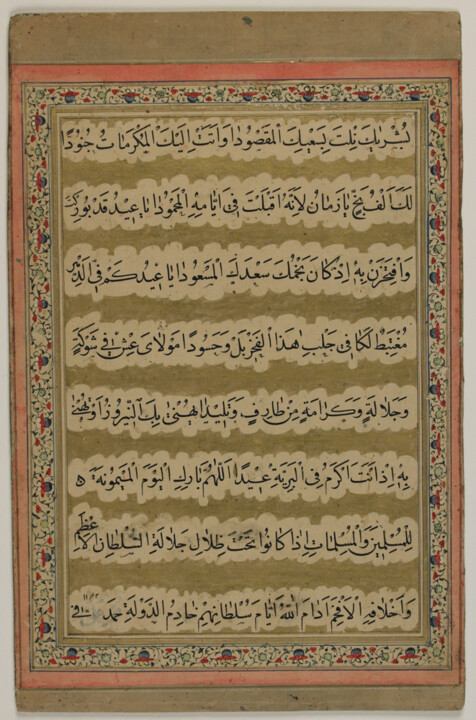 بشريك نلت لسعيك المقصودا واتت اليك المكرمات جنودا
لك الف بخ يا زمان لانه اقبلت في ايامه المحمودا يا عيد قد بورك
وافتخرن به اذ كان نجمك سعدك المسعودا يا عيد كم في الدهر
مغتبط لكا في جلب هذا الفخر بل وحسودا مولاي عش في شوكة
وجلالة وكرامة من طارف وتليدا يهنئ بك النيروز او تهنئ
به اذ انت اكرم في البرية عيدا اللهم بارك اليوم الميمونة
للمسلمين والمسلمات اذ كانوا تحت ظلال جلالة السلطان الاعظم
واخلافه الافخم ادام الله ايام سلطانهم خادم الدولة محمد